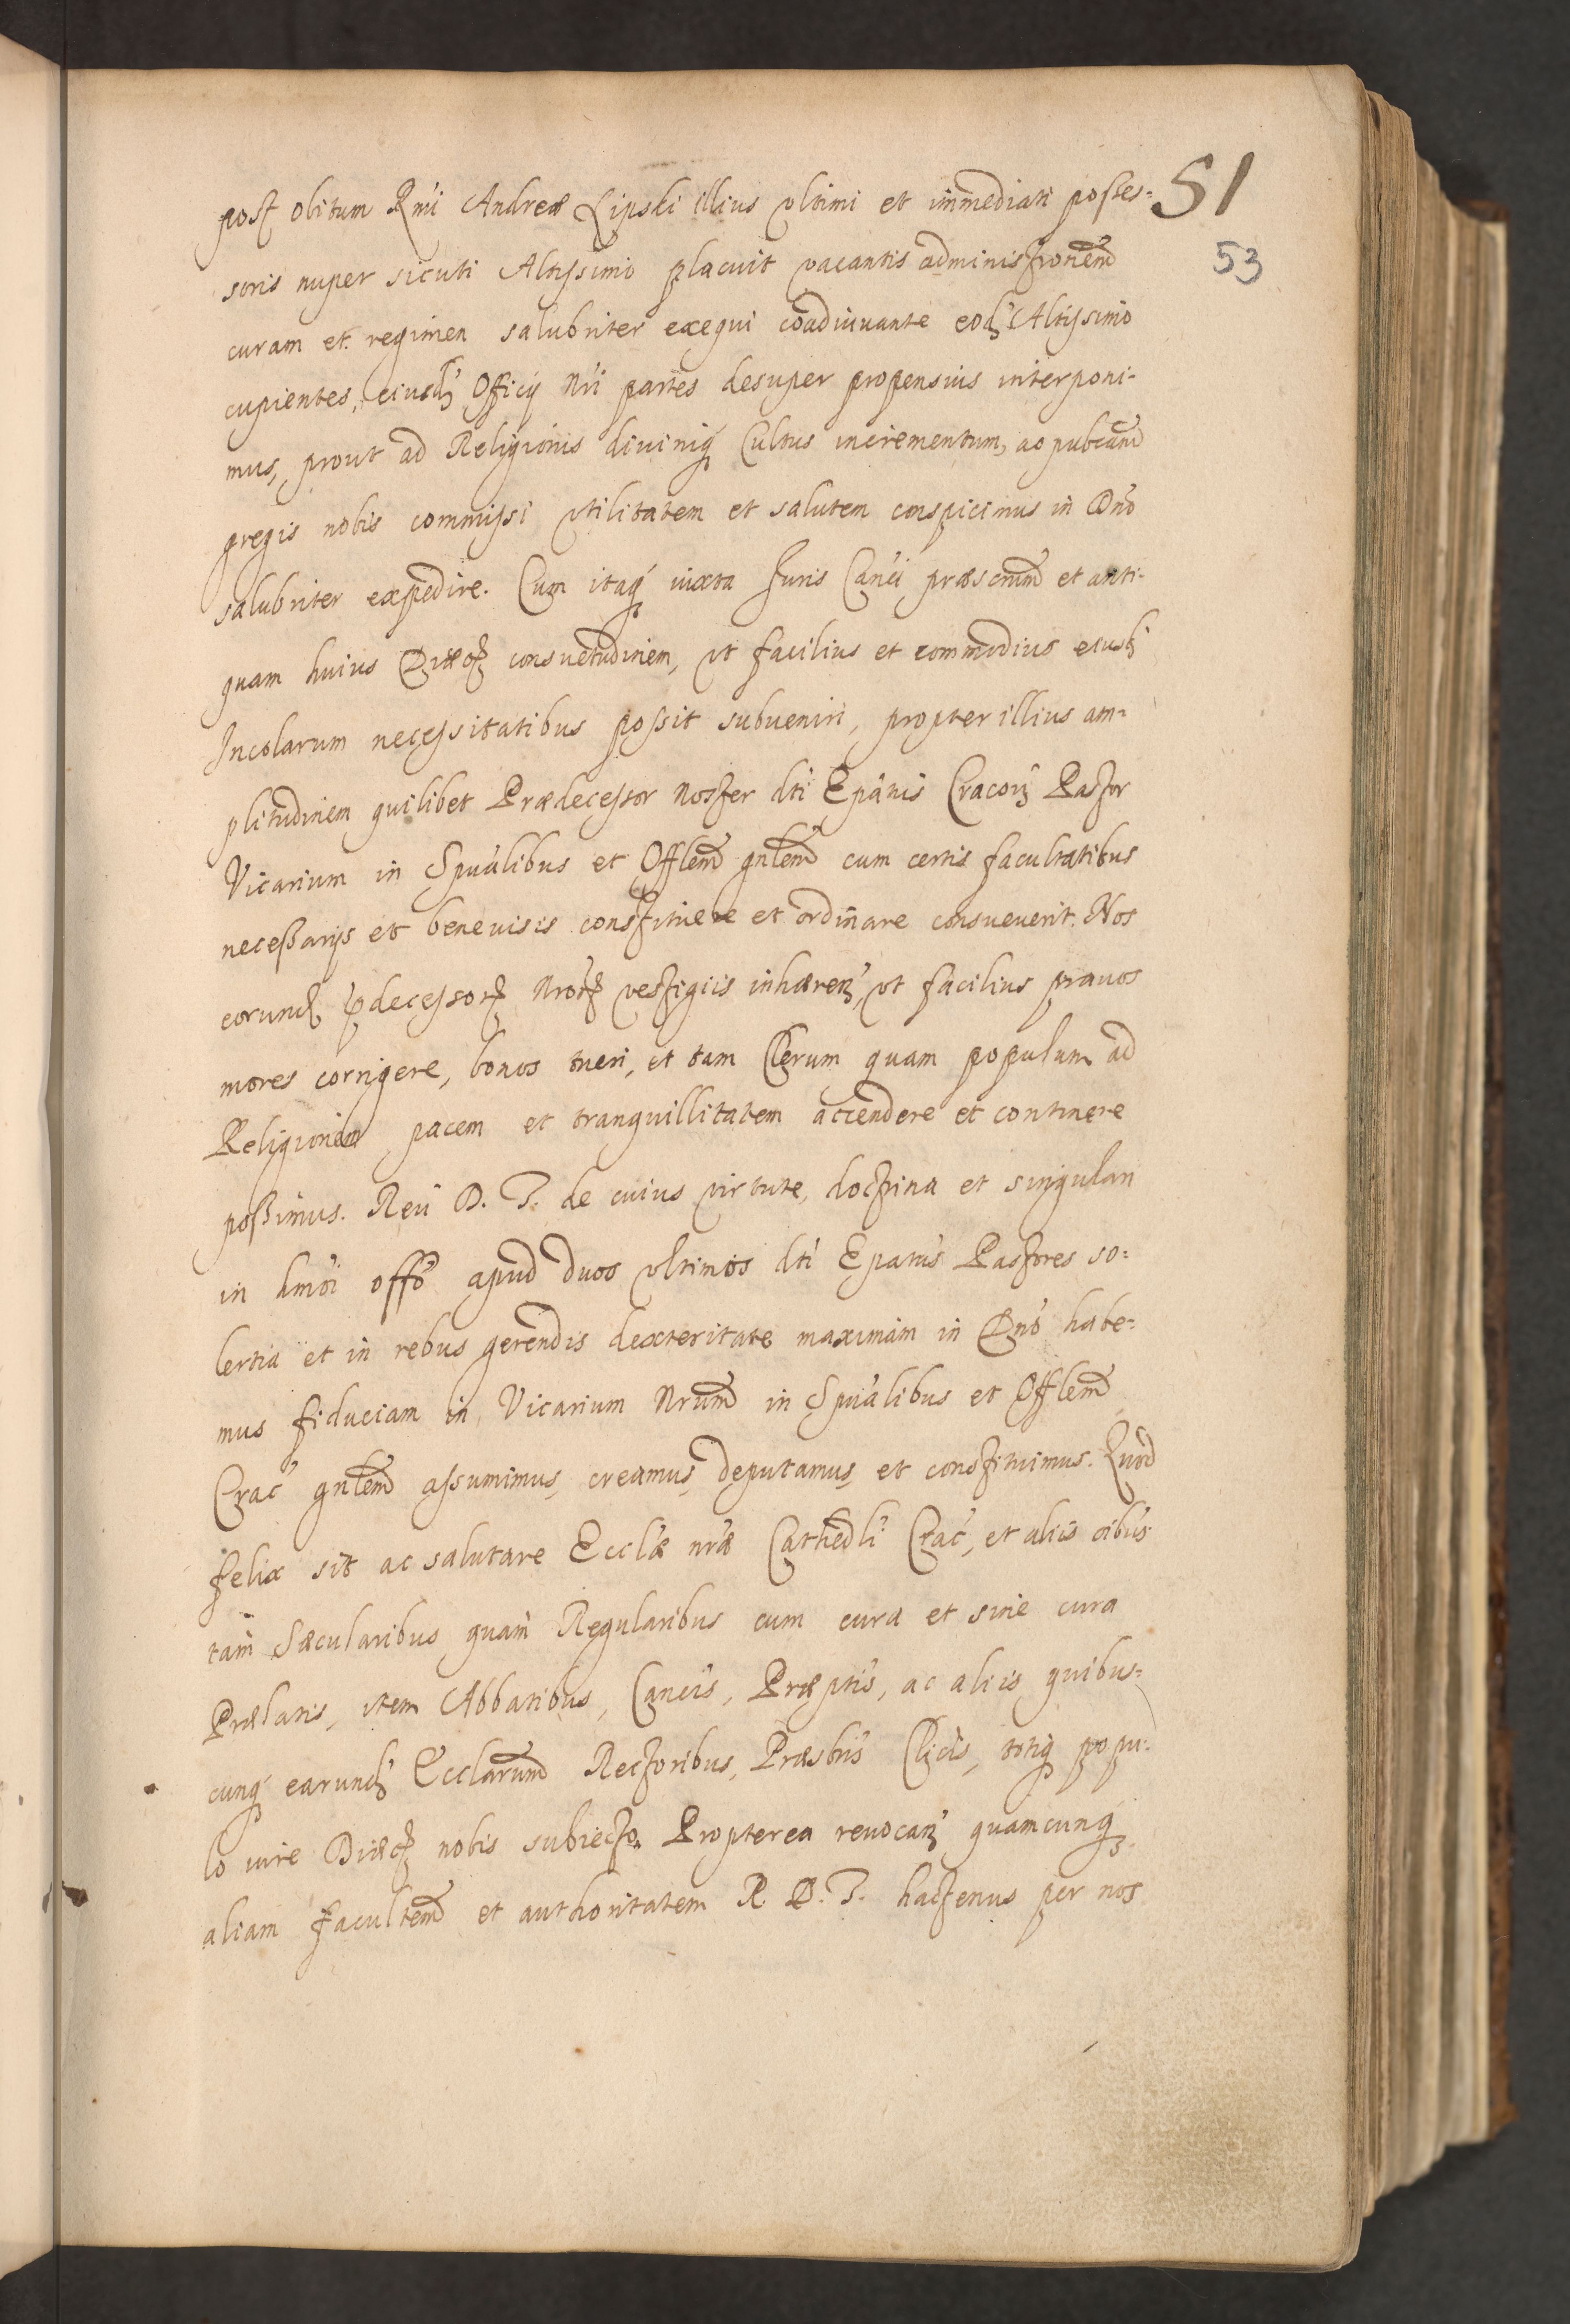 51
53
post obitum Rmi Andreæ Lipski illius ultimi et immediati posses=
soris nuper sicuti Altissimo placuit vacantis administronem
curam et regimen salubriter exequi coadiuvante eod. Altissimo
cupientes, eiusd. Officij Nri partes desuper propensius interponi-
mus, prout ad Religionis diviniq. Cultus incrementum, ac pubcam
gregis nobis commissi utilitatem et salutem conspicimus in Dno
salubriter expedire. Cum itaq. iuxta Juris Canci præscrium et anti-
quam huius Diæc. consuetudinem, ut facilius et commodius eiusd.
Incolarum necessitatibus possit subveniri, propter illius am-
plitudinem quilibet Prædecessor Noster dti Epatus Cracov. Pastor
Vicarium in Spualibus et Offlem gnlem cum certis facultatibus
necessarijs et benevisis constituere et ordinare consueverit. Nos
eorund. pdecessor. Nror. vestigiis inhæren. ut facilius pravos
mores corrigere, bonos tueri, et tam Clerum quam populum ad
Religionem pacem et tranquillitatem accendere et continere
possimus. Reu D. T. de cuius virtute, doctrina et singulari
in hmoi offo apud duos ultimos dti Epatus Pastores so=
lertia et in rebus gerendis dexteritate maximam in Dno habe=
mus fiduciam in Vicarium Nrum in Spualibus et Offlem
Crac. gnlem assumimus, creamus, deputamus, et constituimus. Quod
felix sit ac salutare Ecclæ nræ Cathedli Crac., et aliis oibus
tam Sæcularibus quam Regularibus cum cura et sine cura
Prælatis, item Abbatibus, Cancis, Præptis, ac aliis quibus=
cunq. earund. Ecclarum Rectoribus, Præsbris Clicis, totiq. popu-
lo iure Diæc. nobis subiecto. Propterea revocan. quamcunq.
aliam facultem et authoritatem R. D. T. hactenus per nos